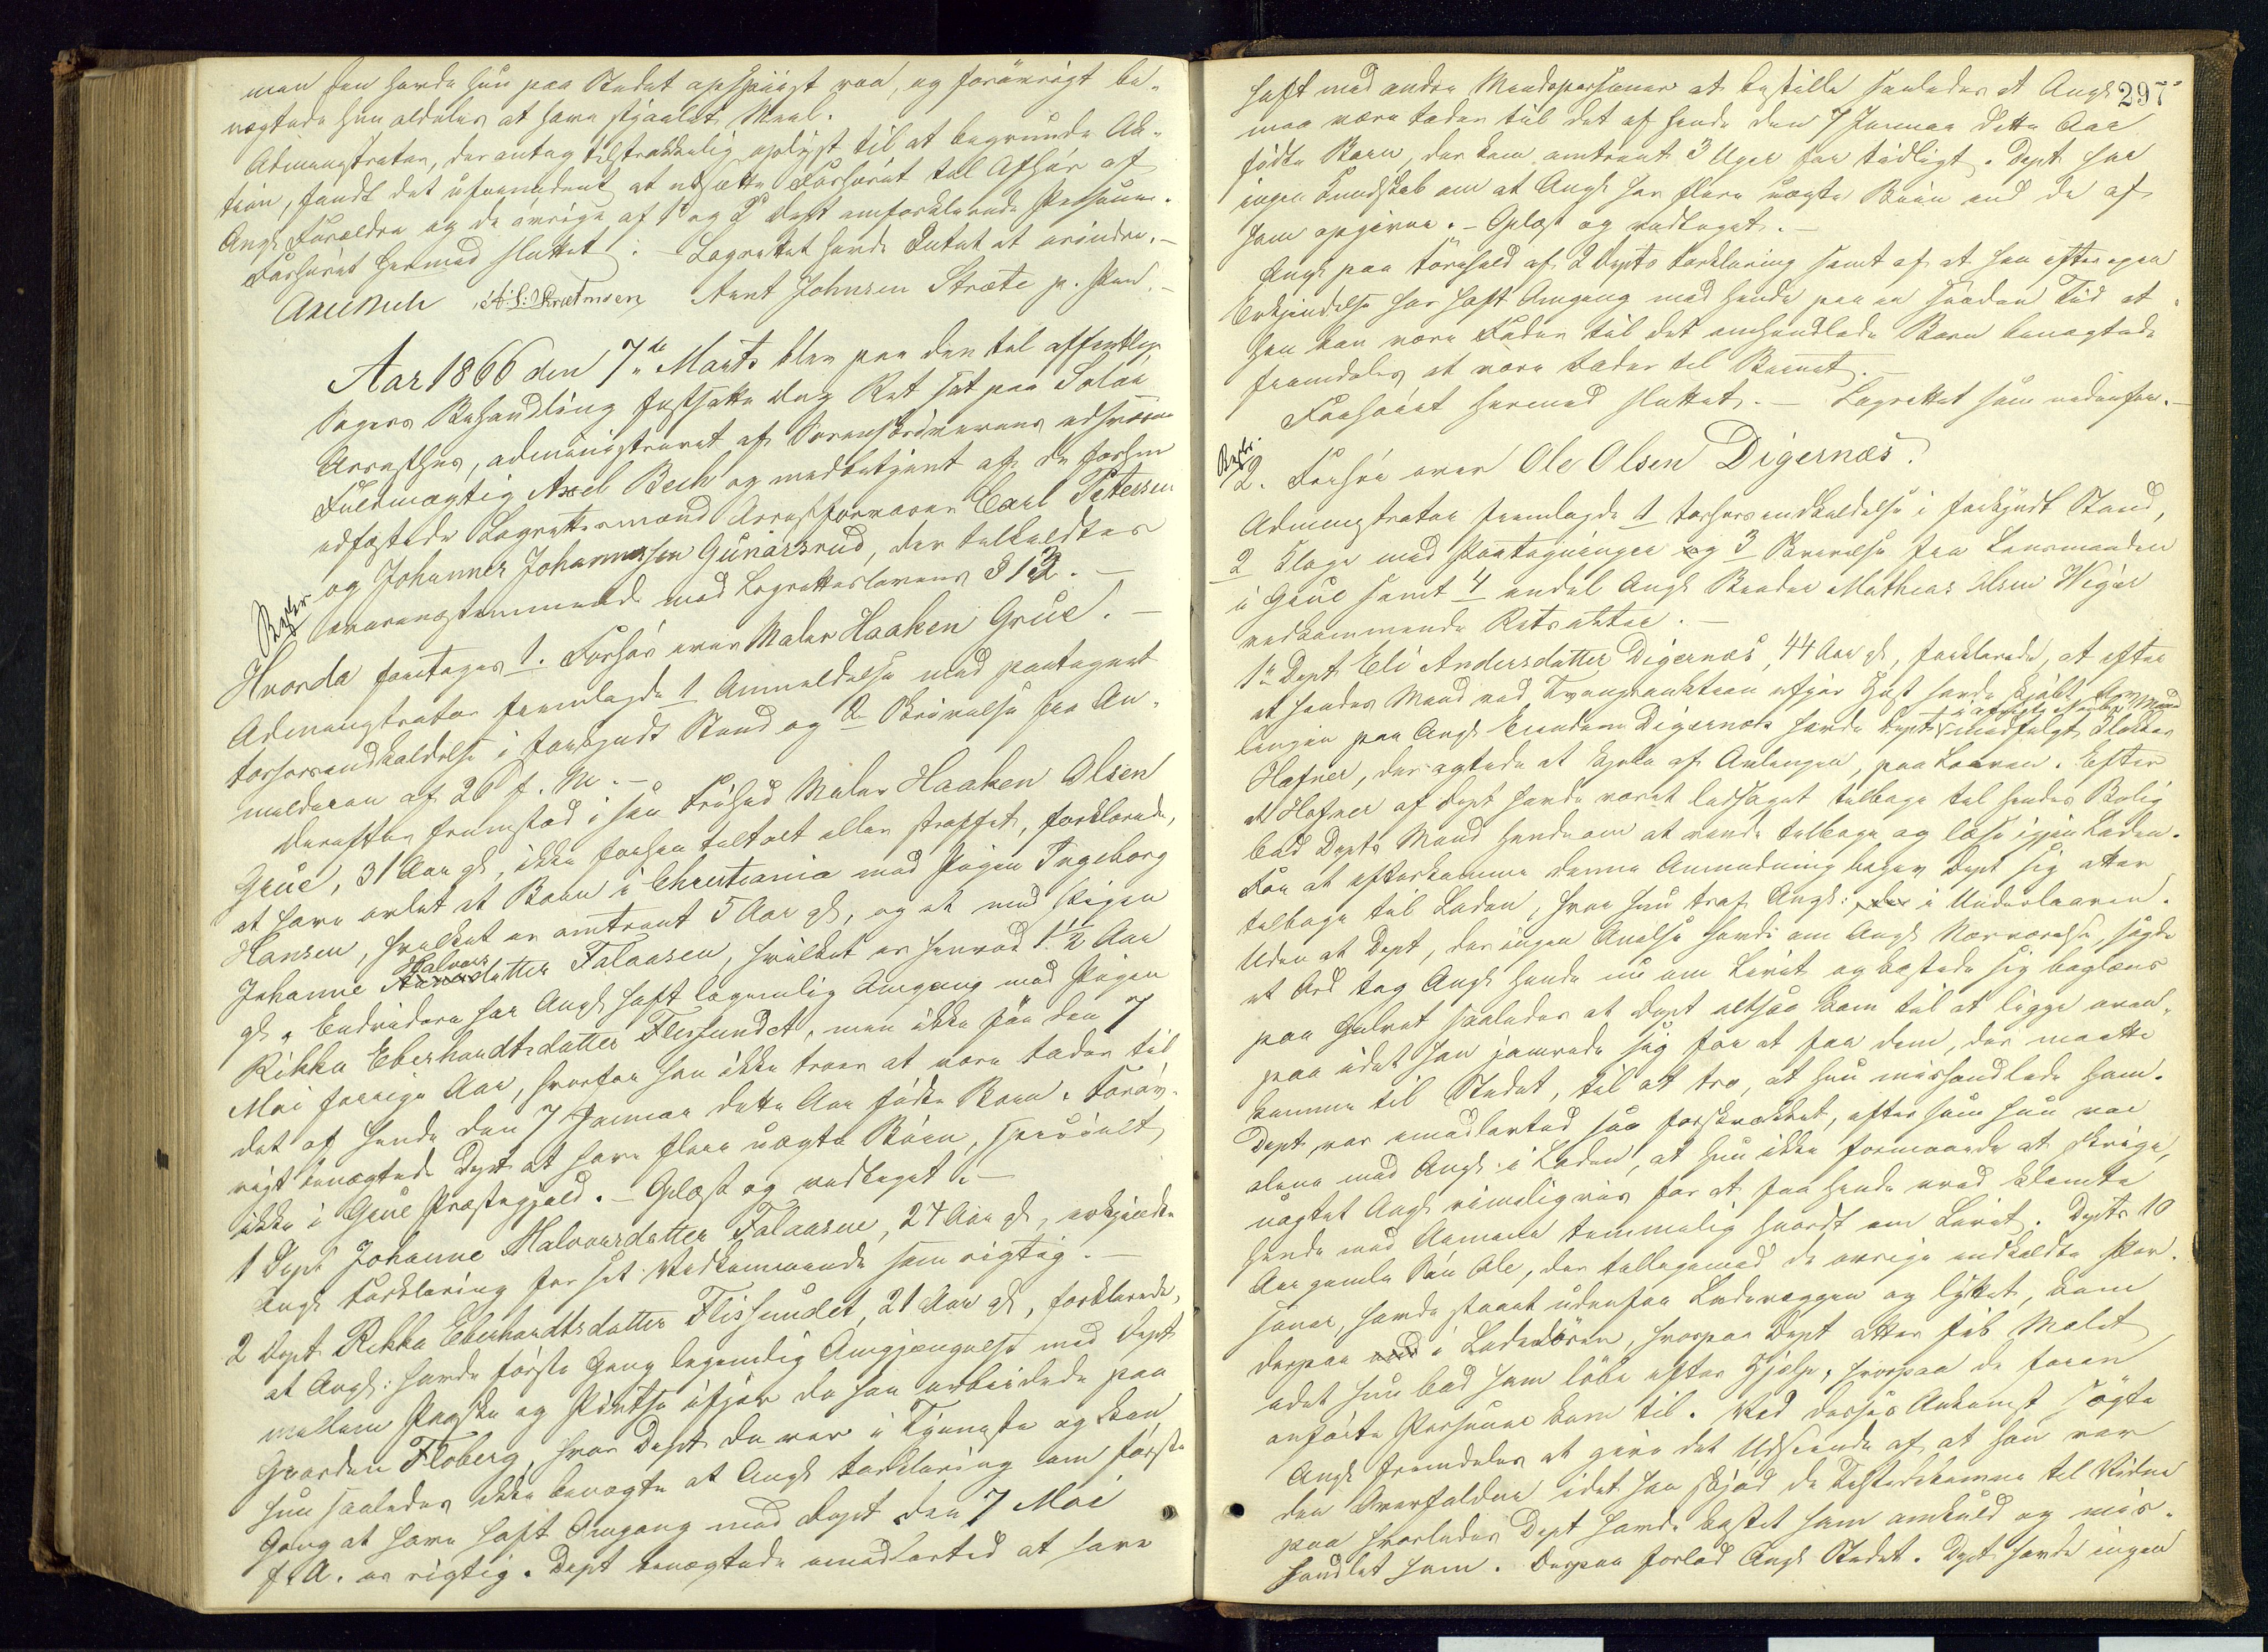 men den havde hun paa Stedet opspiist raa, og forøvrigt be-
nægtede hun aldeles at have stjaalet Meel.
Administrator, der antog tilstrækkelig oplyst til at begrunde Ac-
tion, fandt det ufornødent at udsætte Forhøret til Afhør af
Angs Forældre og de øvrige af 1ste og 2d Dept omforklarede Personer.
Forhøret hermed sluttet. Lagrettet havde Intet at erindre.-
Axel Bech Arnt Johnsen Stræte p. Pen.-
Aar 1866 den 7de Marts blev paa den til offentlige
Sagers Behandling fastsatte Dag Ret sat paa Solør
Arresthus, administreret af Sorenskriverens edsvorne
Fuldmægtig Axel Bech og medbetjent af de forhen
edfæstede Lagrettesmænd Arrestforvarer Carl Petersen
og Johannes Johannessen Gunarsrud, der tilkaldtes
overensstemmende med Lagrettelovens § 12.-
Besk
Hvorda foretoges 1. Forhør over Maler Haaken Grue.-
Administrator fremlagde 1 Anmeldelse med paategnet
Forhørsindkaldelse i forkyndt Stand og 2 Skrivelse fra An-
melderen af 26 f. M.-
Derefter fremstod i sin Frihed Maler Haaken Olsen
Grue, 31 Aar gl, ikke forhen tiltalt eller straffet, forklarede,
at have avlet et Barn i Christiania med Pigen Ingeborg
Hansen, hvilket er omtrent 5 Aar gl, og et med Pigen
Johanne Halvorsdatter Falaasen, hvilket er henved 1 1/2 Aar
gl. Endvidere har Angs havt legemlig Omgang med Pigen
Rikka Eberhardtsdatter Flissundet, men ikke før den 7
Mai forrige Aar, hvorfor han ikke troer at være Fader til
det af hende den 7 Januar dette Aar fødte Barn. Forøv-
rigt benægtede Dept at have flere uægte Børn, specielt
ikke i Grue Præstegjeld.- Oplæst og vedtaget.-
1 Dept Johanne Halvorsdatter Falaasene, 24 Aar gl, erkjendte
Angs Forklaring for sit Vedkommende som rigtig.-
2 Dept Rikka Eberhardtsdatter Flissundet, 21 Aar gl, forklarede,
at Angs: havde første Gang legemlig Omgjængelse med Dept
mellem Paaske og Pintse ifjor da han arbeidede paa
Gaarden Floberg, hvor Dept da var i Tjeneste og kan
hun saaledes ikke benægte at Angs Forklaring om første
Gang at have havt Omgang med Dept den 7 Mai
f. A. er rigtig. Dept benægtede imidlertid at have
297
havt med andre Mandspersoner at bestille saaledes at Angs
maa være Fader til det af hende den 7 Januar dette Aar
fødte Barn, der kom omtrent 3 Uger for tidligt. Dept har
ingen Kundskab om at Angs har flere uægte Børn end de af
ham opgivne.- Oplæst og vedtaget.-
Angs paa Forehold af 2 Depts Forklaring samt af at han efter egen
Erkjendelse har havt Omgang med hende paa en saadan Tid at
han kan være Fader til det omhandlede Barn benægtede
fremdeles at være Fader til Barnet.-
Forhøret hermed sluttet.- Lagrettet som nedenfor.-
Besk.
2. Forhør over Ole Olsen Digernæs.
Administrator fremlagde 1 Forhørsindkaldelse i forkyndt Stand,
2 Klage med Paategninger og 3 Skrivelse fra Lensmanden
i Grue samt 4 endel Angs Broder Mathias Olsen Wigar
vedkommende Retsakter.-
1ste Dept Eli Andersdatter Digernæs, 44 Aar gl, forklarede, at efter
at hendes Mand ved Tvangsauktion ifjor Høst havde kjøbt Av-
lingen paa Angs Eiendom Digernæs havde Dept medfulgt Klokker
Hafner, der agtede at kjøbe af Avlingen, paa Laaven. Efter
at Hafner af Dept havde været ledsaget tilbage til hendes Bolig
bad Depts Mand hende om at vende tilbage og låse igjen Laden.
For at efterkomme denne Anmodning begav Dept sig atter
tilbage til Laden, hvor hun traf Angs: i Underlaaven.
Uden at Dept, der ingen Anelse havde om Angs Nærværelse, sagde
et Ord tog Angs hende nu om Livet og kastede sig baglæns
paa Gulvet saaledes at Dept altsaa kom til at ligge oven-
paa idet han jamrede sig for at faa dem, der maatte
komme til Stedet, til at tro, at hun mishandlede ham.
Dept, var imidlertid saa forskrækket, eftersom hun var
alene med Angs i Laden, at hun ikke formaaede at skrige,
uagtet Angs rimeligviis for at faa hende ned klemte
hende med Armene temmelig haardt om Livet. Depts 10
Aar gamle Søn Ole, der tilligemed de øvrige indkaldte Per-
soner, havde staaet udenfor Ladevæggen og lyttet, kom
derpaa i Ladedøren, hvorpaa Dept atter fik Mælet
idet hun bad ham løbe efter Hjælp, hvorpaa de foran
anførte Personer kom til. Ved disses Ankomst søgte
Angs fremdeles at give det Udseende af at han var
den Overfaldne idet han skjød de Tilstedekomne til Vidne
paa hvorledes Dept havde kastet ham omkuld og mis-
handlet ham. Derpaa forlod Angs Stedet. Dept havde ingen